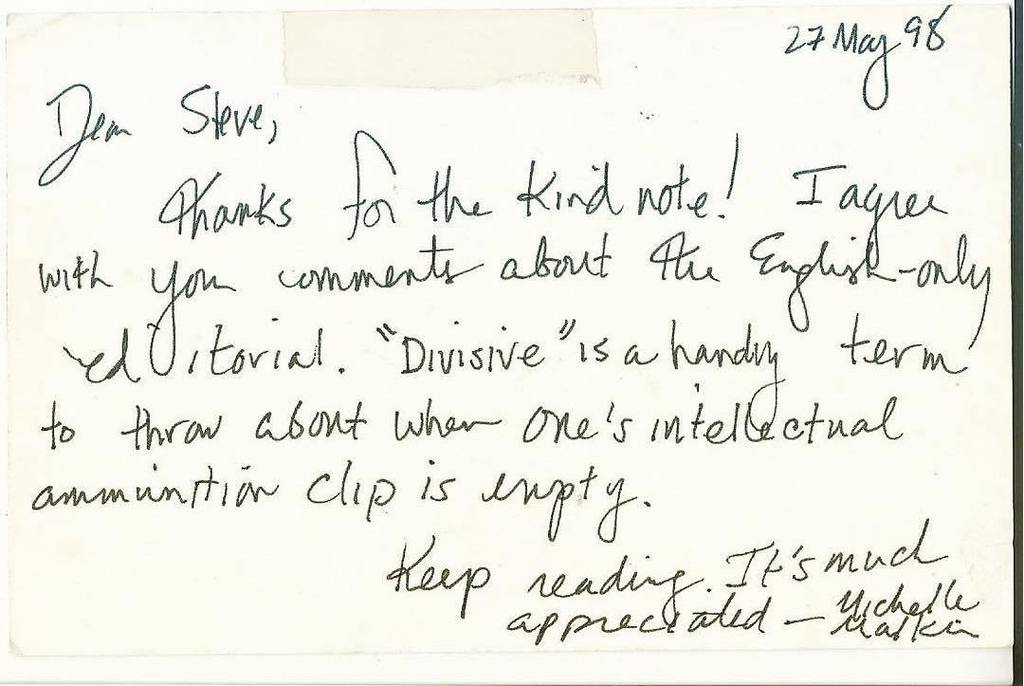 27 May 98
Dear Steve,
Thanks for the kind note! I agree
with your comments about the English-only
editorial. "Divisive" is a handy term
to throw about when one's intellectual
ammunition clip is empty.
Keep reading. It's much
appreciated — Michelle
Malkin